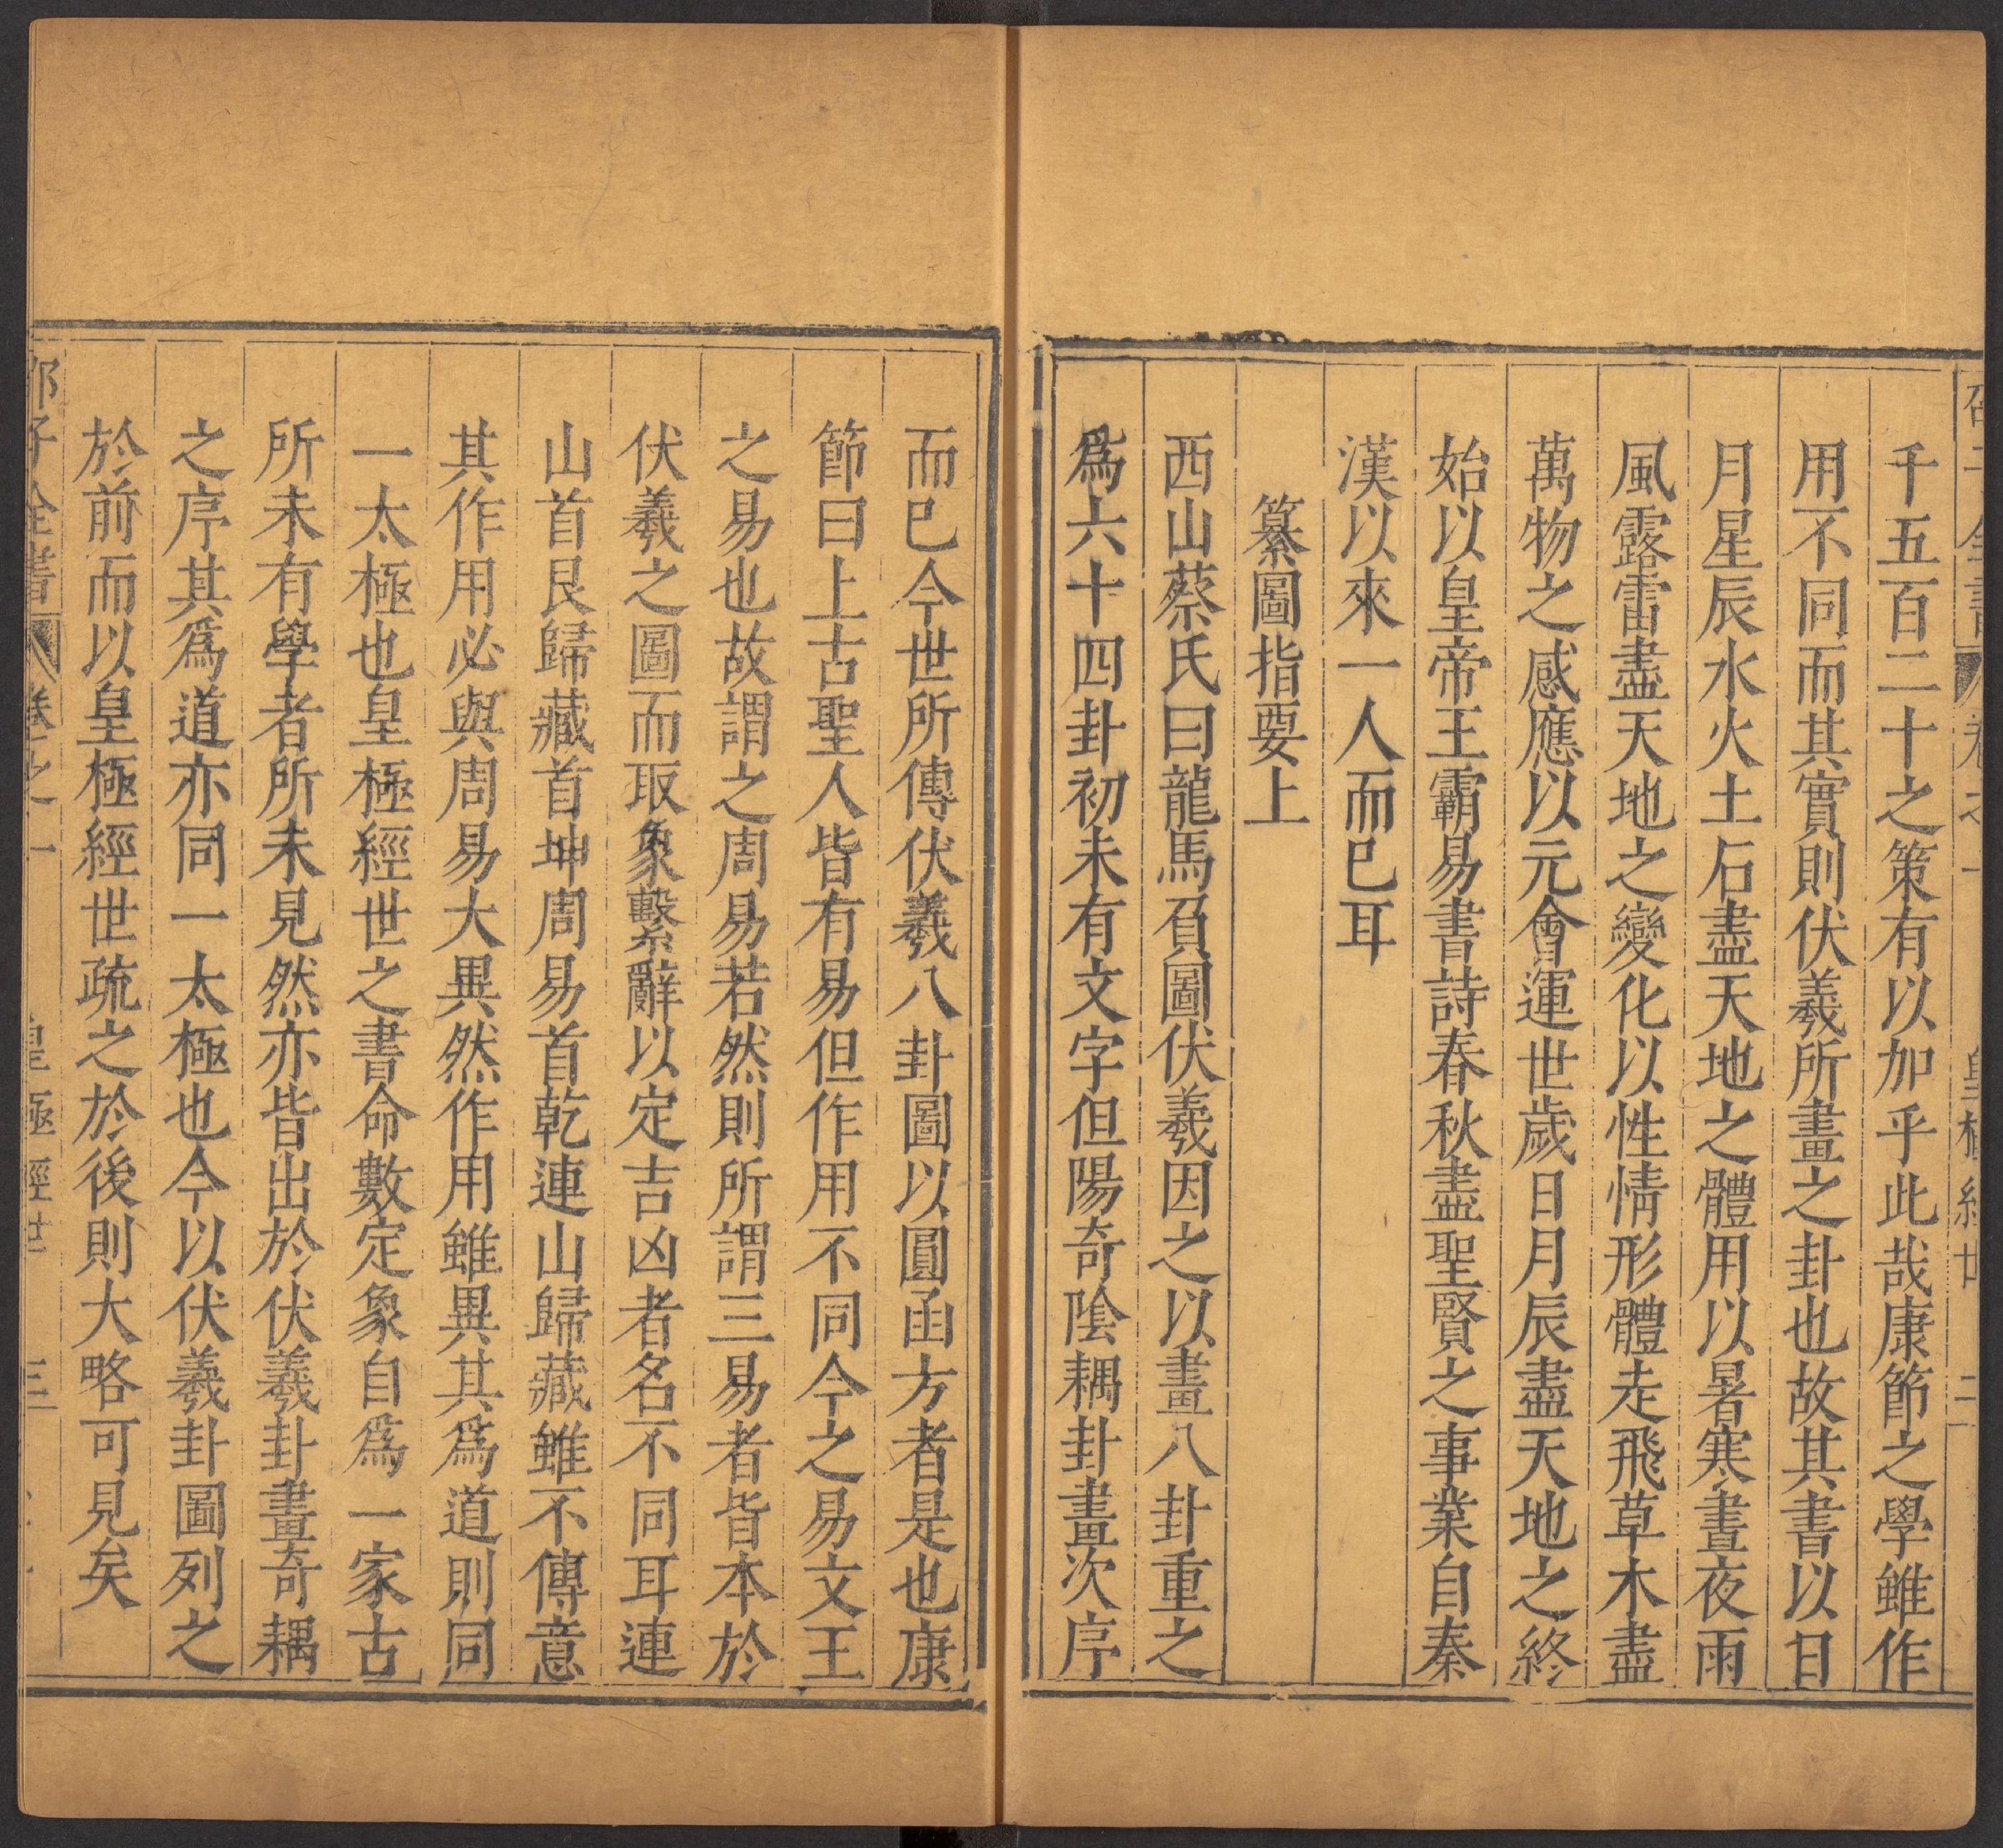 千五百二十之策有以加乎此哉康節之學雖作
用不同而其實則伏羲所畫之卦也故其書以日
月星辰水火土石盡天地之體用以暑寒晝夜雨
風露雷盡天地之變化以性情形體走飛草木盡
萬物之感應以元會運世歲日月辰盡天地之終
始以皇帝王霸易書詩春秋盡聖賢之事業自秦
漢以來一人而已耳
纂圖指要上
西山蔡氏曰龍馬負圖伏羲因之以畫八卦重之
爲六十四卦初未有文字但陽奇陰耦卦畫次序
而已今世所傳伏羲八卦圖以圓函方者是也康
節曰上古聖人皆有易但作用不同今之易文王
之易也故謂之周易若然則所謂三易者皆本於
伏羲之圖而取象繫辭以定吉凶者名不同耳連
山首艮歸藏首坤周易首乾連山歸藏雖不傳意
其作用必與周易大異然作用雖異其爲道則同
一太極也皇極經世之書命數定象自爲一家古
所未有學者所未見然亦皆出於伏羲卦畫奇耦
之序其爲道亦同一太極也今以伏羲卦圖列之
於前而以皇極經世疏之於後則大略可見矣
邵子全書 卷之一 皇極經世 三